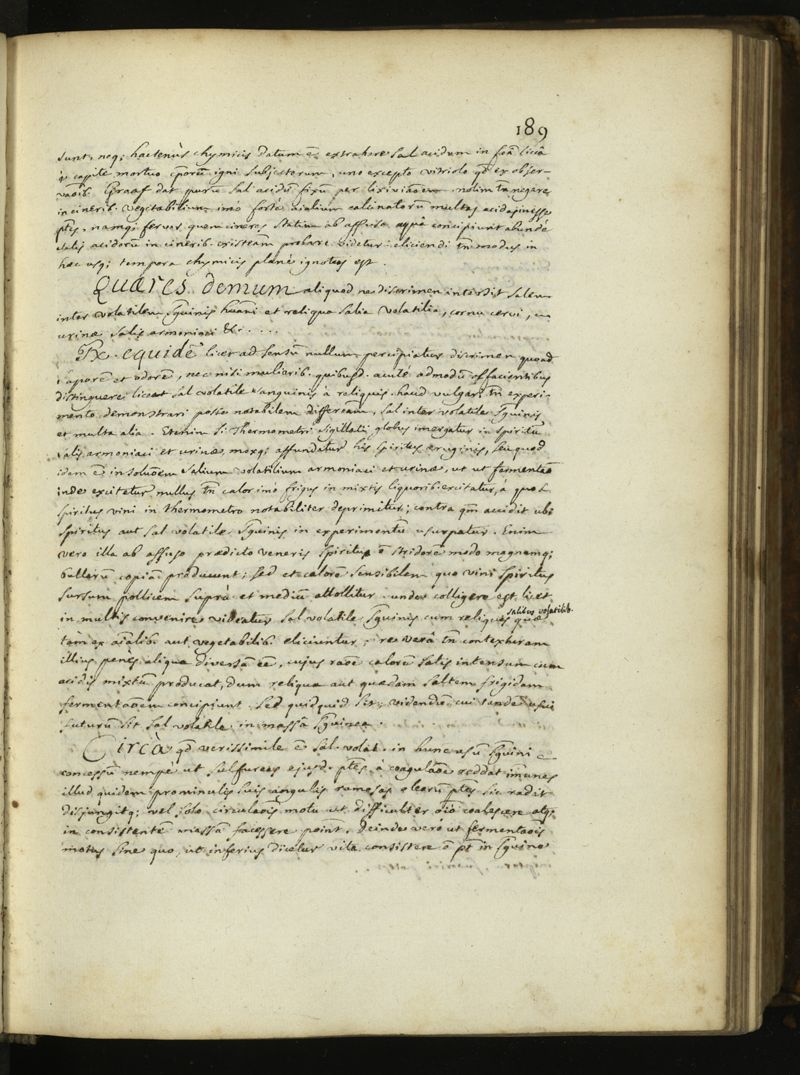 189
sunt, neq; hactenùs chymicis datum ē extrahere sal acidum in formâ siccâ
è capite mortuo cporum igni subjectorum, uno excepto vitriolo qd ex obser-
vaōib. Graaf dat purū sal acidū fixū per lixiviaōem. nolim tam negere
in cinerib. vegitabilium, imò forte aīalium calcinatorū multas acidas inesse
ptes, namq; fervor quem cineres statim ab affusa aquâ concipiunt abundè
salis acidorū in cinerib. existeām probare videtur: eliciendi tn̄ modus in
hæc usq; tempora chymicis planè ignotus est.
Quæres demum aliquod ne discrimen intersit salem
inter volatilem sgūinis hūani et reliqua salia volatilia, cornu cervi,
urinæ salis armoniaci &c. ....
Rx. equidē licet ad sensū nullum percipiatur discrimen quoad
saporē et odorē, nec nisi mulierib. quibusd. acutè admodū olfacientibus
distinguere liceat sal volatile sanguinis à reliquis. haud vulgari tn̄ experi-
mento demonstrari posse notabilem differeam, sal inter volatile sgūinis
et multa alia. Etenim si Thermometri sigillati globus imergatur in spiritū
salis armoniaci et urinæ, moxq; affundatur his spiritus æruginis, seu quod
idem ē in soluōem salium volatilium armoniaci et urinæ, ut ut fermentāo
inde excitetur nullus tn̄ calor imò frigus in mixtis liquorib. excitatur, à quo
spiritus vini in thermometro notabiliter deprimitur; contra qm̄ accidit ubi
spiritus aut sal volatile sgūinis in experimentū usurpatur. Enim
vero illa ab affuso prædicto veneris spiritu ē stridorē modo magnamq;
bullarū copiā producunt; sed et calorē sensibilem quo vini spiritus
sursum pollicem suprà et mediū attollitur. unde colligere est licet
in multis convenire videatur sal volatile sgūinis cum reliquis salibus volatilib. quæ
tam ex aīalib. aut vegetabilib. eliciuntur; re verâ tn̄ contexturam
illius penès aliqua diversā eē, cujus raōe calorē satis intensum cum
acidis mixtū producat, dum reliqua aut quædam saltem frigidam
fermentaōem concipiunt. Sed quidquid sit, videndū cui tandē usui
futurū sit sal volatile in massâ sgūinea.
Circà qd verissimile ē sal volat. in hunc usū sgūini ē
concessū nempe ut sulfureas ejusd. ptes à coagulaōe reddat imunes
illud quidem prominulis suis angulis ramosas oleorū ptes sic radit
disjungitq; vel solo circulaōis motu ut difficulter oīo coalescere atq;
in consistentē massā facessere point. Deindè vero ut fermentaōis
motus sine quo, ut inferius dicetur vita consistere ō pt in sgūine